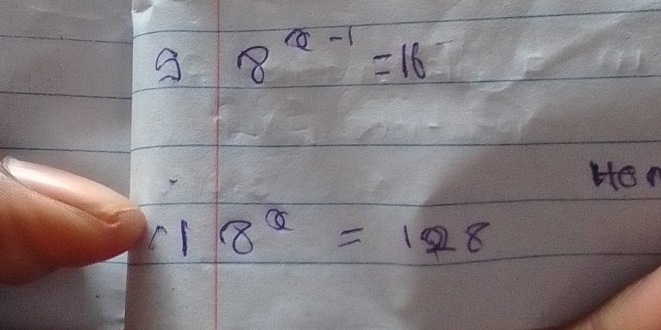 9 8^{x-1} = 16
Hon
1 8^x = 128